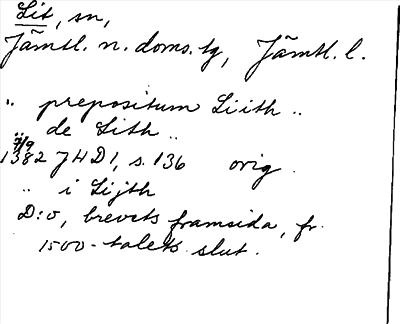 Lit, sn,
Jämtl. n. doms. tg, Jämtl. l.
" prepositum Liith ..
de Lith "
7/9
1382 JHD 1, s. 136 orig.
" i Lijth
D:o, brevets framsida, fr.
1500-talets slut.